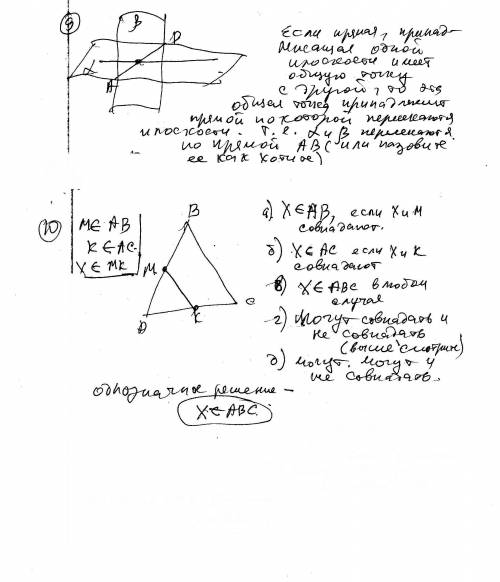 9
β
D
α
A
Если прямая, принад-
лежащая одной
плоскости имеет
общую точку
с другой, то эта
общая точка принадлежит
прямой по которой пересекаются
плоскости. Т.е. α и β пересекаются
по прямой AB (или назовите
ее как хотите)
10
M∈AB
K∈AC
X∈MK
B
M
K
C
а) X∈AB, если X и M
совпадают.
б) X∈AC если X и K
совпадают
в) X∈ABC в любом
случае
г) Могут совпадать и
не совпадать
(выше смотри)
д) могут. могут и
не совпадать.
однозначное решение –
X∈ABC.